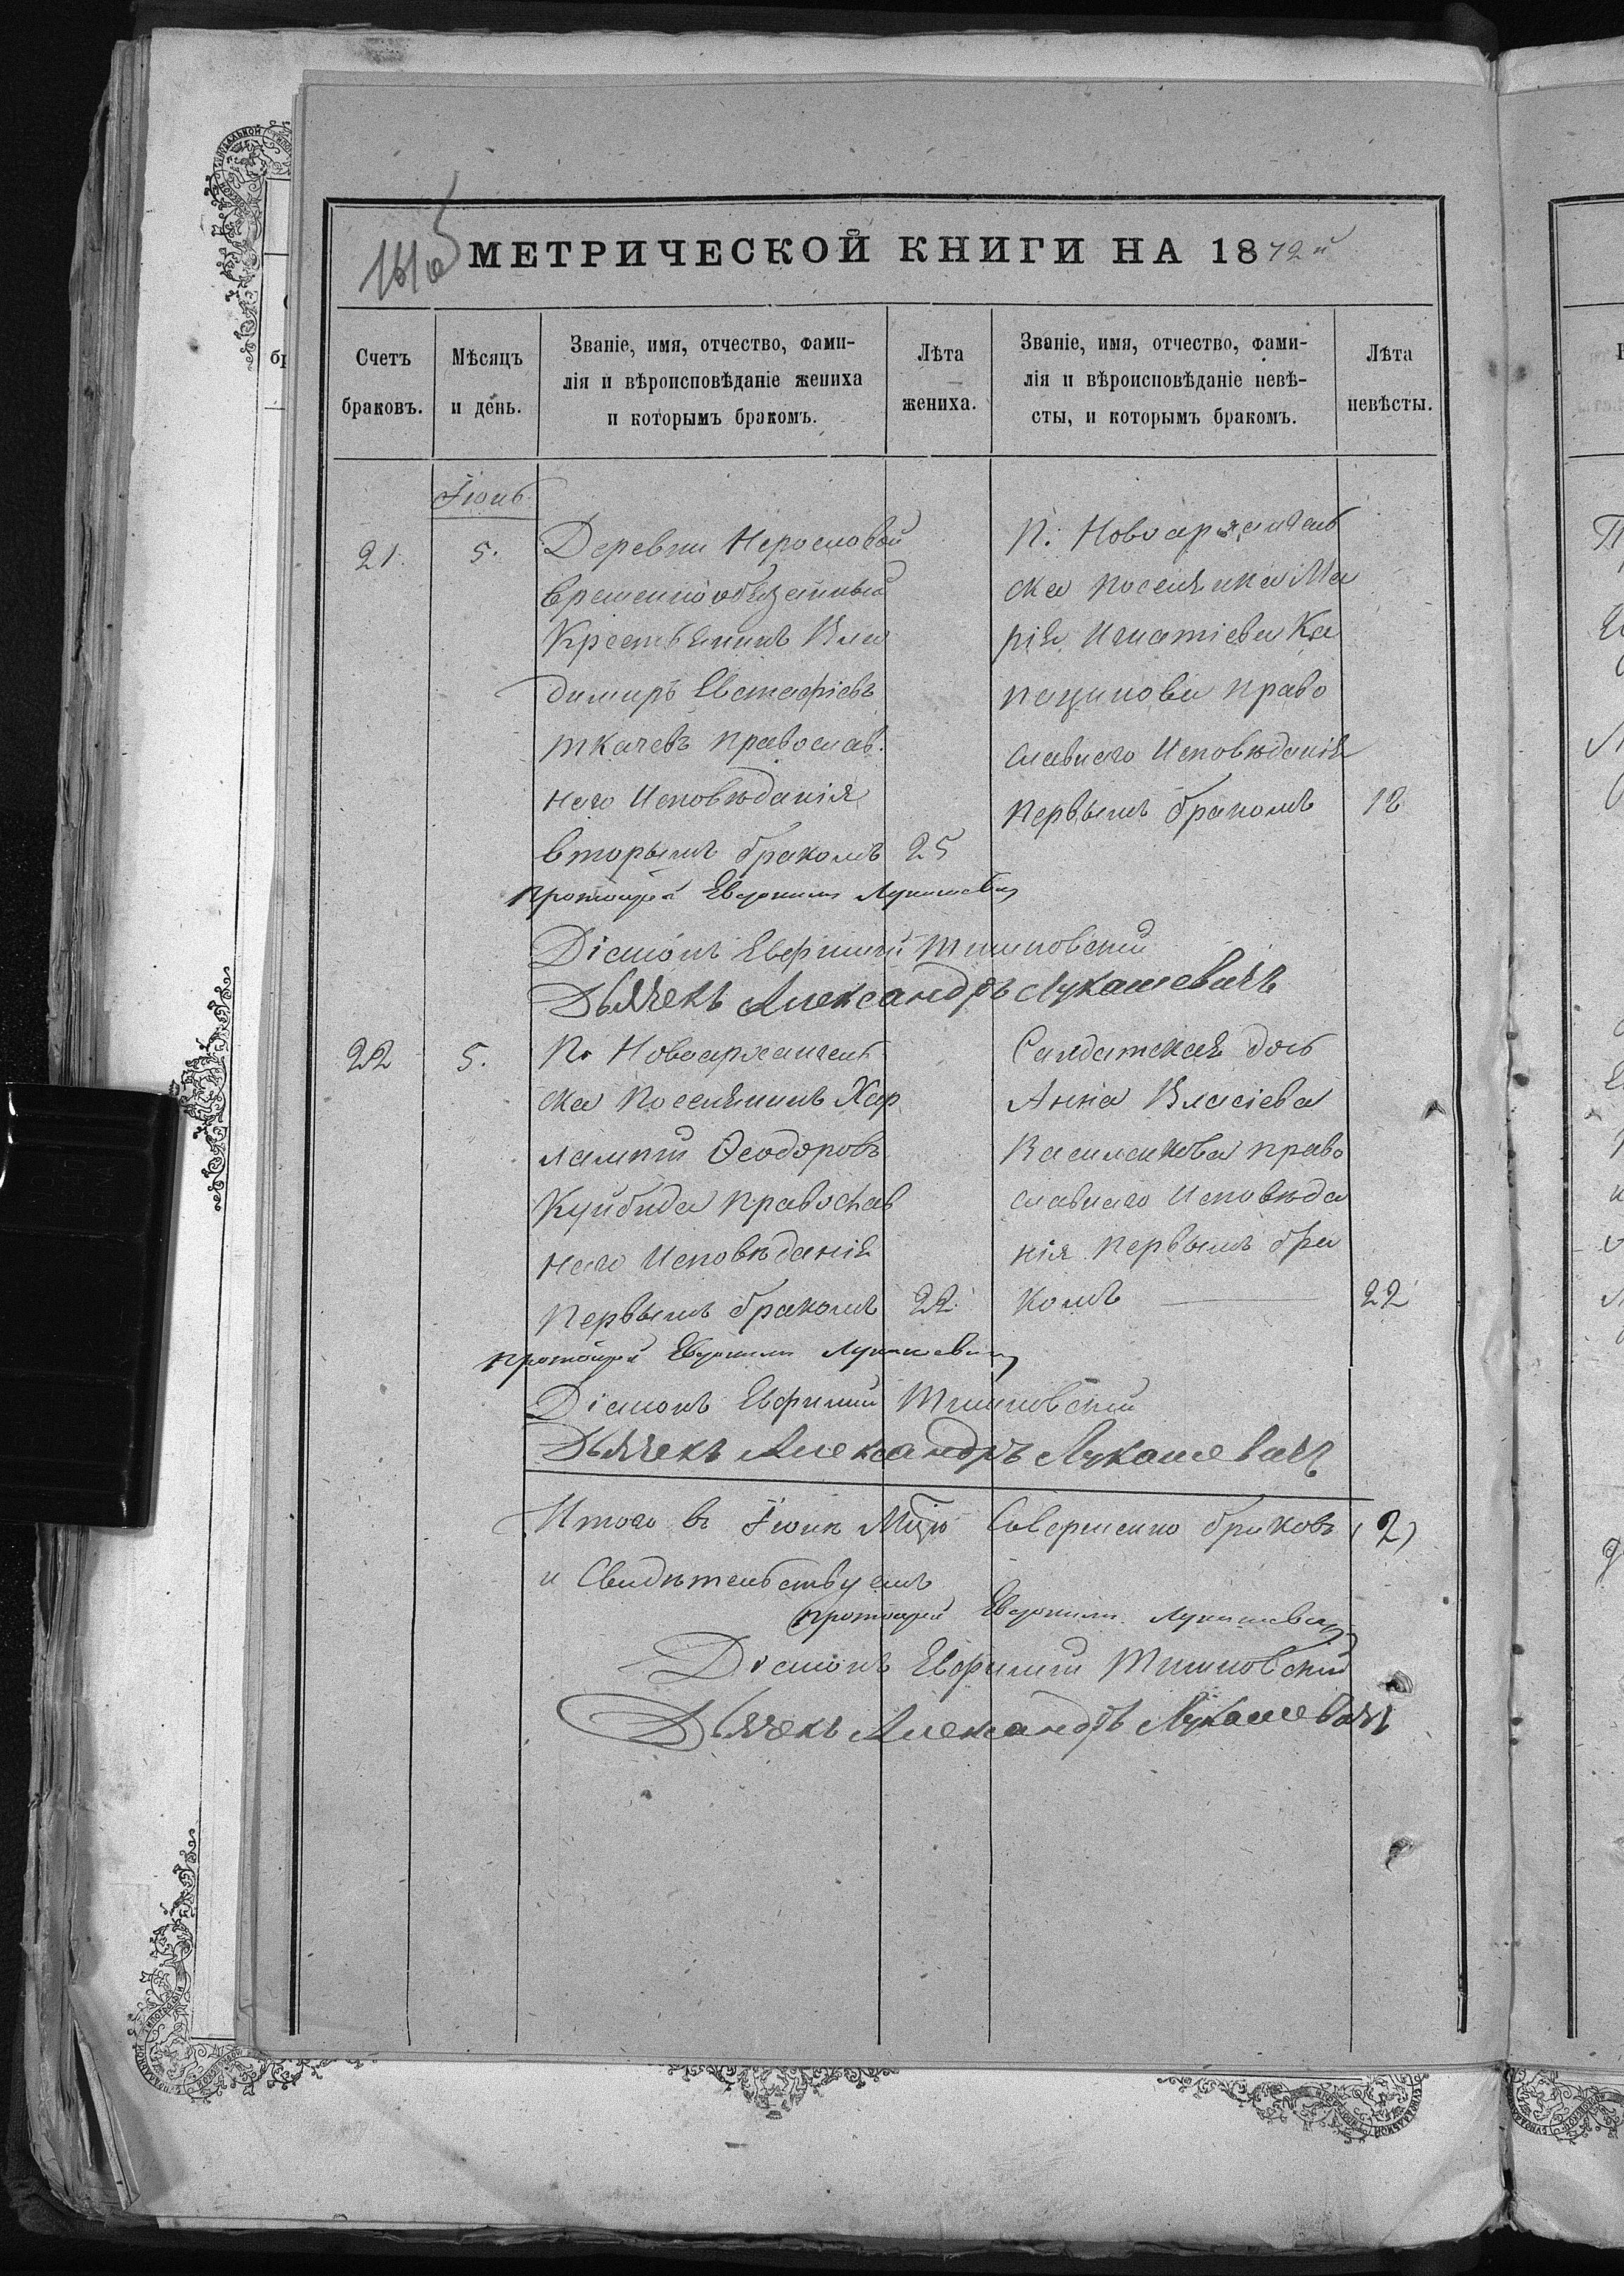 МЕТРИЧЕСКОЙ КНИГИ НА 1872й
Счетъ браковъ.
Мѣсяцъ и день.
Званіе, имя, отчество, фами-
лія и вѣроисповѣданіе жениха
и которымъ бракомъ.
Лѣта жениха.
Званіе, имя, отчество, фами-
лія и вѣроисповѣданіе невѣ-
сты, и которымъ бракомъ.
Лѣта невѣсты.
Іюнь
21. 5.
Деревни
временнообязанный
Крестьянинъ Вла
димиръ Евстафіевъ
Ткачевъ православ.
наго Исповѣданія
вторымъ бракомъ 25
П. Новоархангель
ска поселянка Ма
рія Игнатіева Ка
пацинова право
славнаго Исповѣданія
Первымъ бракомъ 18
Протоіерей Лукашевичъ
Діаконъ Евфимій Тишковскій
Дьячекъ Александръ Лукашевичъ
22 5.
П. Новоархангель
ска Поселянинъ Хар
лампій Ѳеодоровъ
Куйбида Православ
наго Исповѣданія
Первымъ бракомъ 22.
Салдатская дочь
Анна Власіева
право
славнаго Исповѣда
нія Первымъ бра
комъ 22
Протоіерей Лукашевичъ
Діаконъ Евфимій Тишковскій
Дьячекъ Александръ Лукашевичъ
Итого въ Іюнѣ Мцѣ Совершено браковъ (2)
и Свидѣтельствуемъ
Протоіерей Лукашевичъ
Діаконъ Евфимій Тишковскій
Дьячекъ Александръ Лукашевичъ